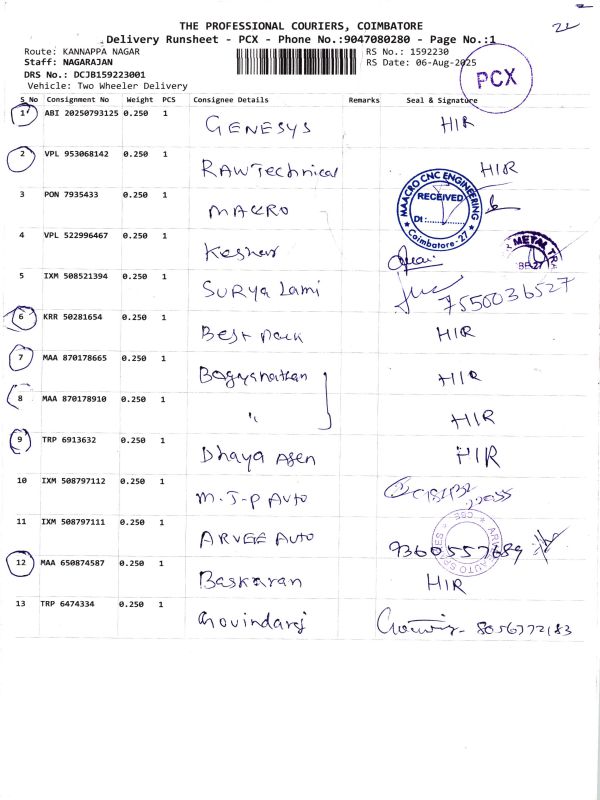 THE PROFESSIONAL COURIERS, COIMBATORE
Delivery Runsheet - PCX - Phone No.:9047080280 - Page No.:1
Route: KANNAPPA NAGAR RS No.: 1592230
Staff: NAGARAJAN RS Date: 06-Aug-2025
DRS No.: DCJB159223001 PCX
Vehicle: Two Wheeler Delivery
S_No Consignment No Weight PCS Consignee Details Remarks Seal & Signature
1 ABI 20250793125 0.250 1 GENESYS HIR
2 VPL 953068142 0.250 1 RAW Technical HIR
3 PON 7935433 0.250 1 MACRO MAACRO CNC ENGINEERING RECEIVED Dt: Coimbatore-27
4 VPL 522996467 0.250 1 Keshar METAL
5 IXM 508521394 0.250 1 SURya Lami 7550036527
6 KRR 50281654 0.250 1 Best pack HIR
7 MAA 870178665 0.250 1 Bagyanathan HIR
8 MAA 870178910 0.250 1 " HIR
9 TRP 6913632 0.250 1 Dhaya Agen HIR
10 IXM 508797112 0.250 1 M.J.P AUTO
11 IXM 508797111 0.250 1 ARVEE AUTO 9360557689 AUTO SPARES CBE
12 MAA 650874587 0.250 1 Baskaran HIR
13 TRP 6474334 0.250 1 Govindaraj 8056772183